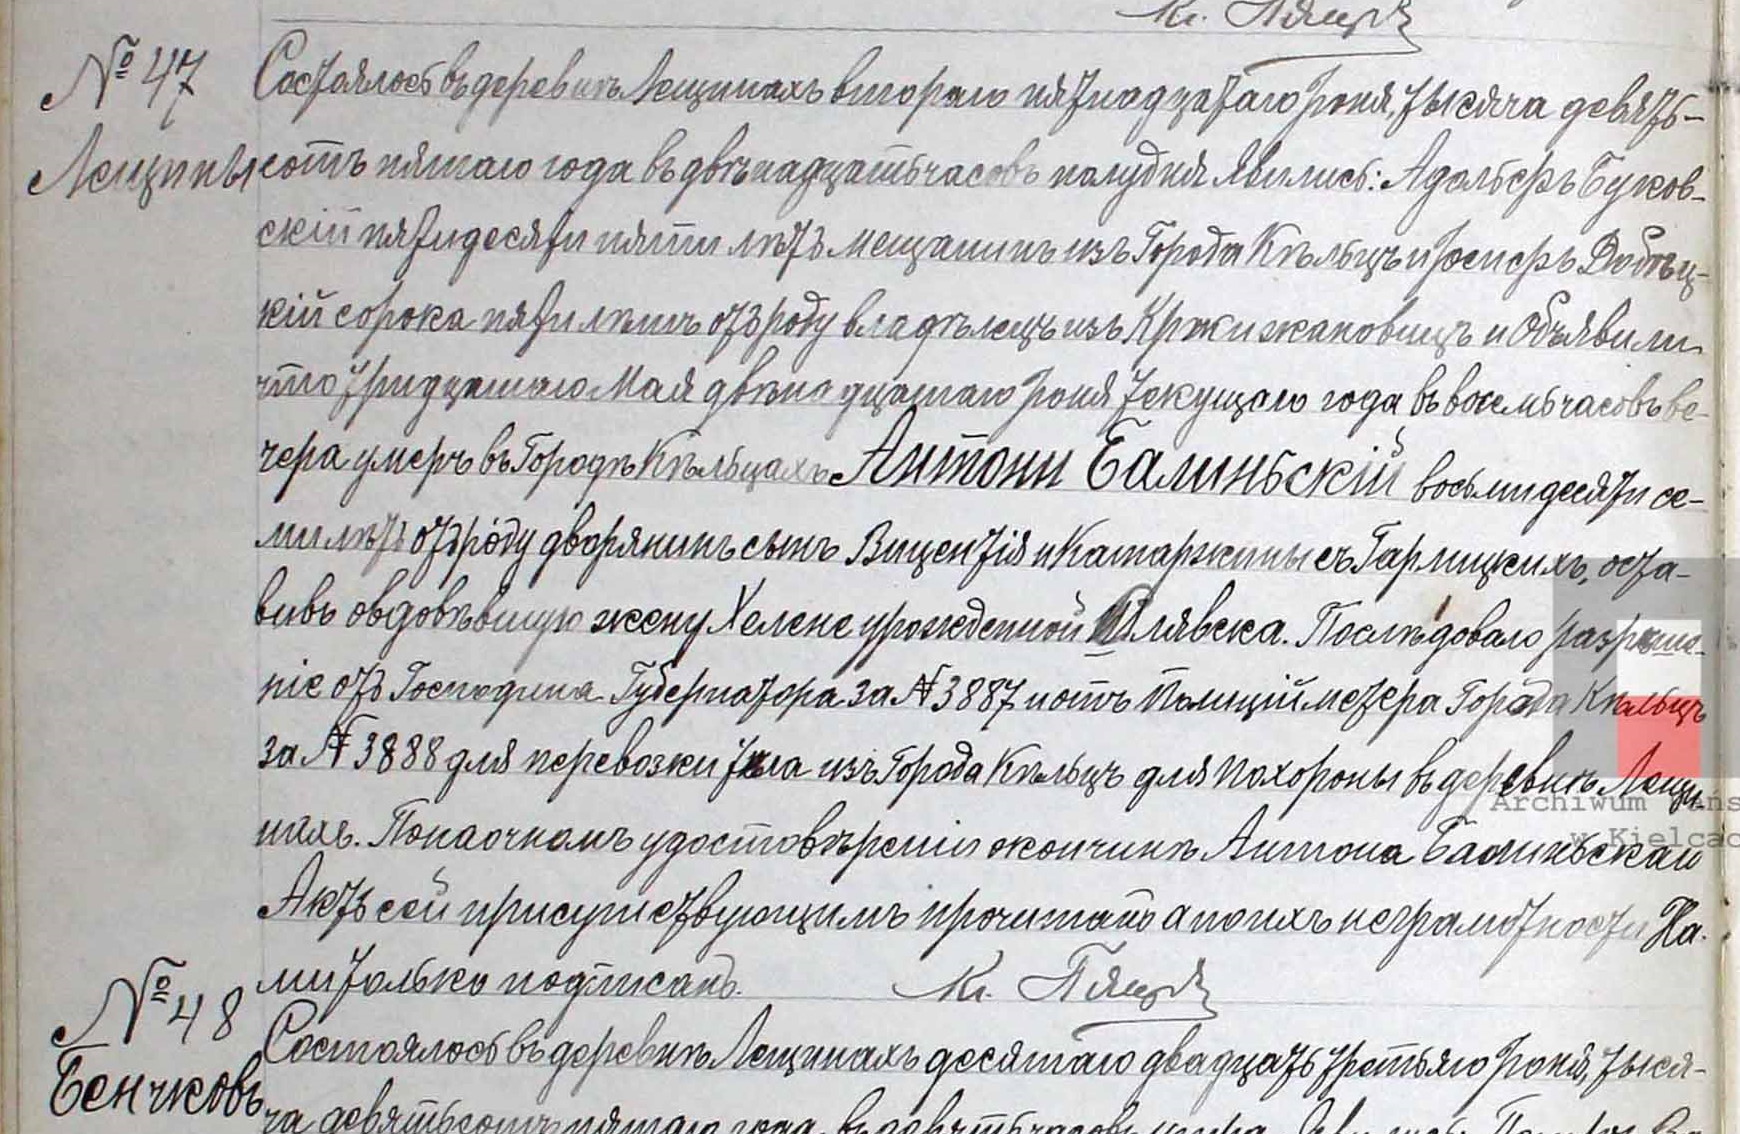 Кс. Пящр
№ 47
Состоялось въ деревнѣ Лещинахъ второго пятнадцатаго Іюня, тысяча девять-
Лещины
сотъ пятаго года въ двѣнадцать часовъ полудня явились: Адольфъ Буков-
скій пятидесяти пяти лѣтъ мещанинъ изъ Города Кѣльцъ и Іосифъ
кій сорока пяти лѣтъ отъ роду владѣлецъ изъ Кржижановицъ и объявили
что тридцатаго Мая двѣнадцатаго Іюня текущаго года въ восемь часовъ ве-
чера умеръ въ Городѣ Кѣльцахъ Антони Балиньскій восьмидесяти се-
ми лѣтъ отъ роду дворянинъ сынъ Вицентія и Катаржины съ Гарлицкихъ, оста-
вивъ овдовѣвшую жену Хелене урожденной Шлявска. Послѣдовало разрѣше-
ніе отъ Господина Губернатора за № 3887 и отъ Полицiйметера Города Кѣльцъ
за № 3888 для перевозки тѣла изъ Города Кѣльцъ для похороны въ деревнѣ Лещи-
нахъ. По наочномъ удостовѣреніи окончинѣ Антона Балиньскаго
Актъ сей присутствующимъ прочитанъ а по ихъ неграмотности На-
ми только подписанъ. Кс. Пящр
№ 48
Состоялось въ деревнѣ Лещинахъ десятаго двадцать третьяго Іюня, тыся-
Бенчковъ
ча девятьсотъ пятаго года, въ девять часовъ утра. Явились:
Archiwum
w Kielcac